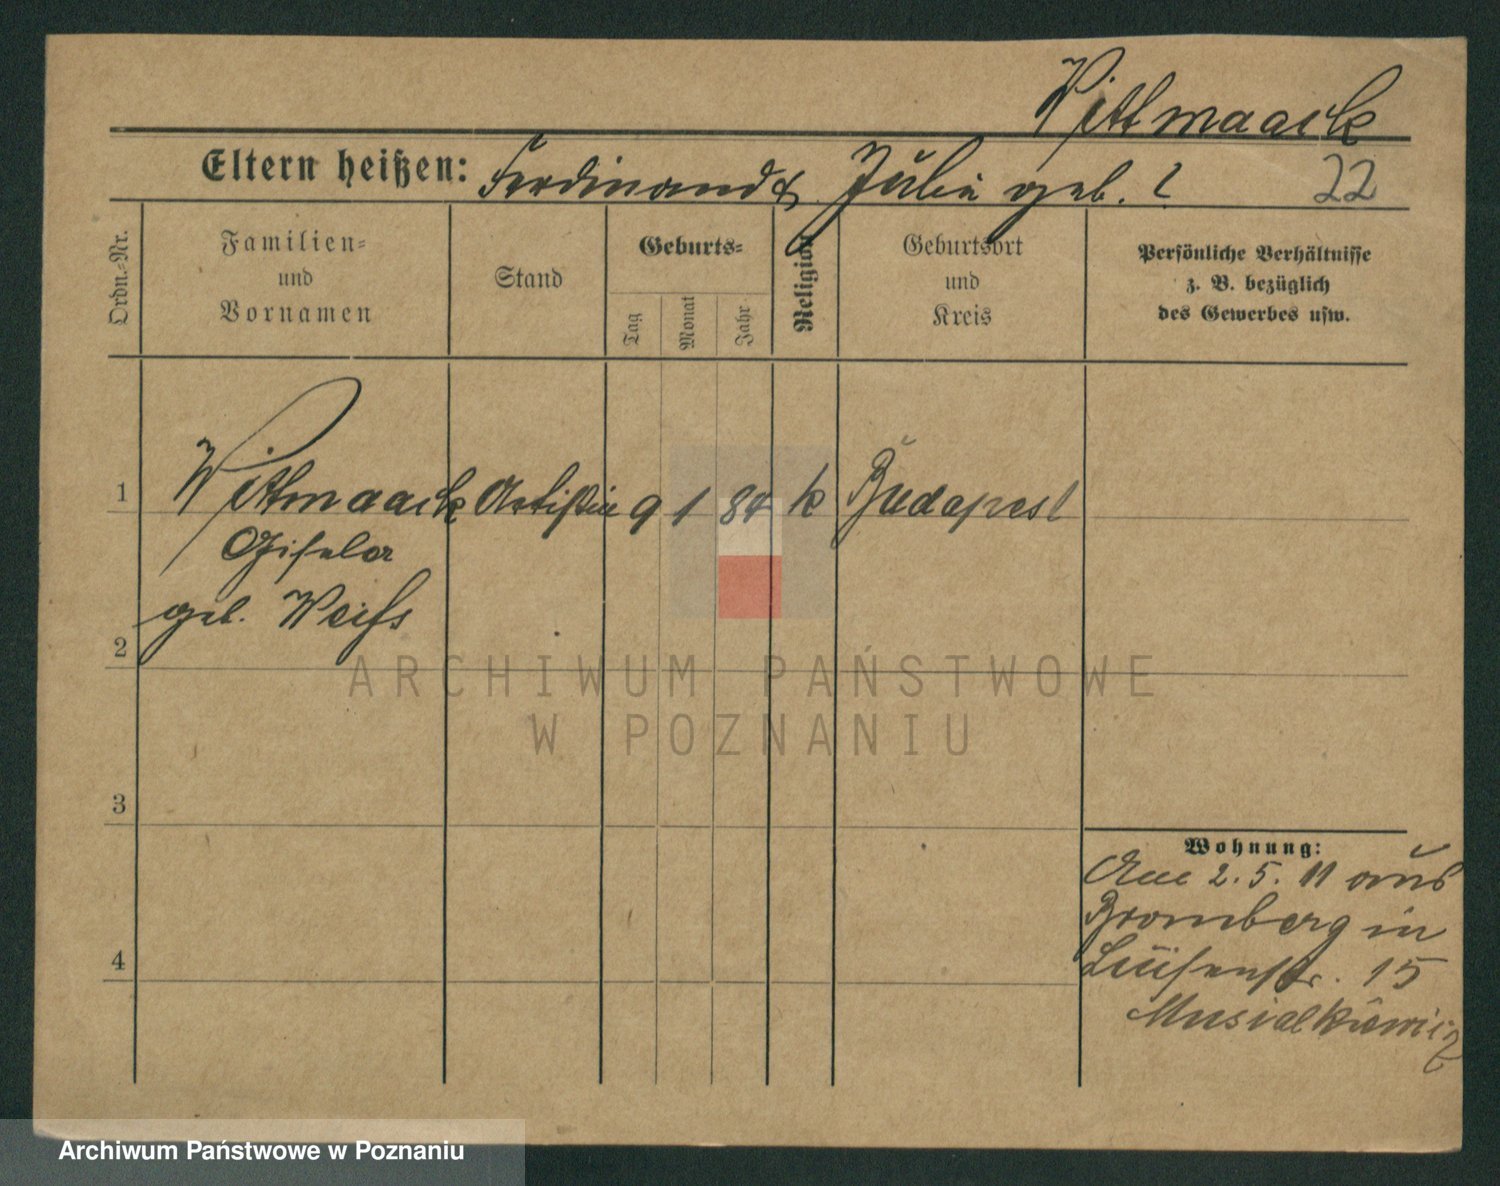 Wittmaack
Eltern heißen: Ferdinand & Julie geb. ?
22
Ordn.-Nr.
Familien-
und
Vornamen
Stand
Geburts-
Tag
Monat
Jahr
Religion
Geburtsort
und
Kreis
Persönliche Verhältnisse
z. B. bezüglich
des Gewerbes usw.
1 Wittmaack Artistin 9 1 84 k Budapest
Gisela
geb. Weiss
2
3
4
Wohnung:
Am 2. 5. 11 aus
Bromberg in
Luisenstr. 15
Musialkiewicz
ARCHIWUM PAŃSTWOWE
W POZNANIU
Archiwum Państwowe w Poznaniu